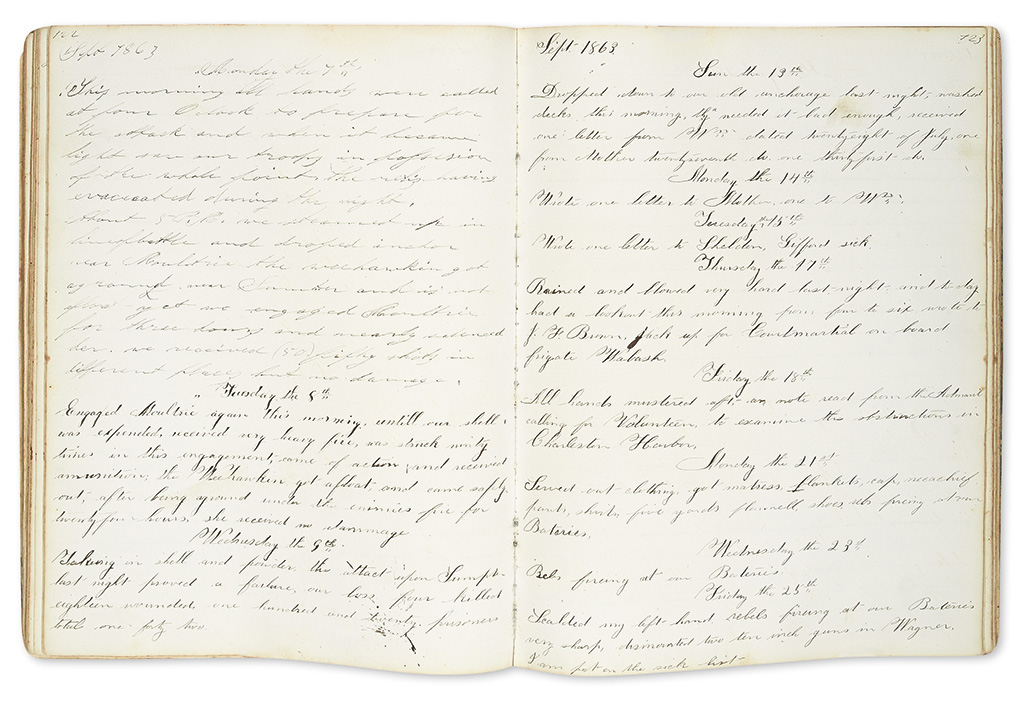 122
Sept 1863
Monday the 7th
This morning all hands were called
at four Oclock to prepare for
the attack and when it became
light saw our troops in possession
of the whole point, the rebs having
evacuated during the night,
about 5 P.M. we steamed up in
line of battle and droped anchor
near Moultrie the weehawkin got
aground near Sumter and is not
yet we engaged Moultrie
for three hours and nearly silenced
her. we received (50) fifty shots in
different places but no damage.
" Tuesday the 8th
Engaged Moultrie again this morning, untill our shell
was expended, received very heavy fire, was struck ninty
times in this engagement, came of action, and received
amunition, the Weehawken got afloat, and came safely
out, after being aground under the enemies fire for
twentyfour hours, she received no dammage
Wednesday the 9th.
Takeing in shell and powder, the attact upon Sumpt-
last night proved a failure, our loss, four killed
eighteen wounded, one hundred and twenty prisoners
total one forty two.
123
Sept 1863
Sun the 13th
Dropped down to our old anchorage last night, washed
decks this morning, they needed it bad enough, received
one letter from Wm dated twentyeight of July, one
from Mother twentyseventh do. one thirty first do.
Monday the 14th
Wrote one letter to Mother, one to Wm.
Tuesday the 15th
Wrote one letter to Sheldon, Gifford sick.
Thursday the 17th
Rained and blowed very hard last night, and to day
had a lookout this morning from four to six wrote to
J. F. Brown, Jack up for Courtmartial on board
frigate Wabash.
Friday the 18th
All hands mustered aft, an note read from the Admiral
calling for Volunteers, to examine the obstructions in
Charleston Harbor,
Monday the 21th
Served out clothing, got matress, blankets, cap, neckchief
pants, shirts, five yards flannell, shoes, rebs fireing at our
Bateries,
Wednesday the 23th
Rebs fireing at our Bateries
Friday the 25th
Scalded my left hand rebels fireing at our Bateries
very sharp, dismounted two ten inch guns in Wagner.
I am put on the sick list